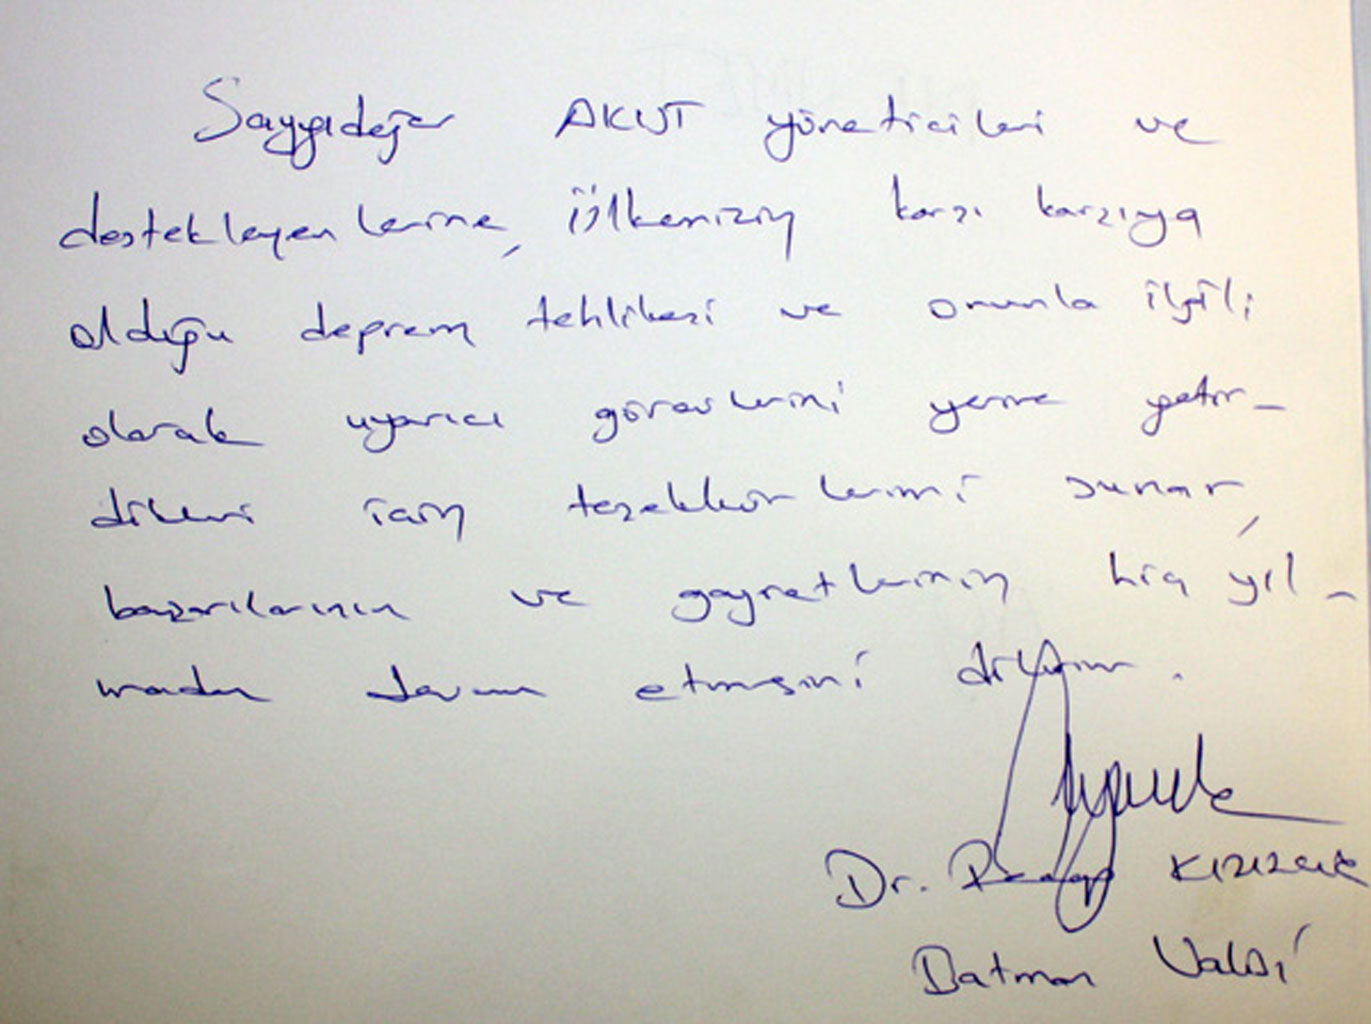 Saygıdeğer AKUT yöneticileri ve
destekleyenlerine, ülkemizin karşı karşıya
olduğu deprem tehlikesi ve onunla ilgili
olarak uyarıcı görevlerini yerine getir-
dikleri için teşekkürlerimi sunar,
başarılarının ve gayretlerinin hiç yıl-
madan devam etmesini dilerim.
Dr. Recep KIZILCIK
Batman Valisi